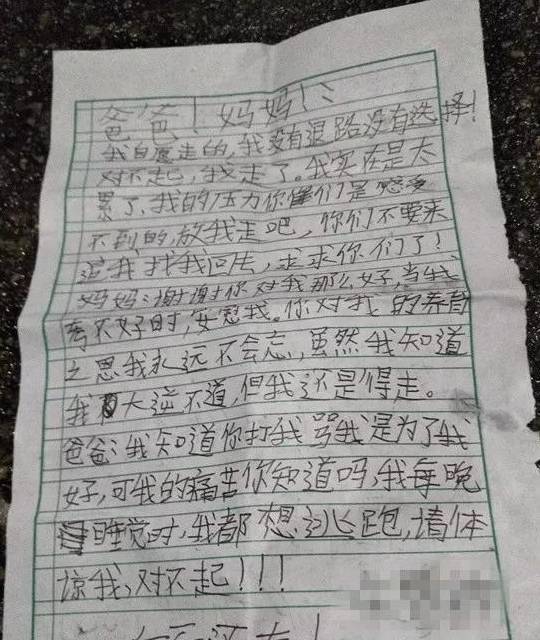 爸爸!妈妈!:
我自愿走的,我没有退路没有选择!
对不起,我走了。我实在是太
累了,我的压力你俩们是感受
不到的,放我走吧,你们不要来
追我找我回去,求求你们了!
妈妈:谢谢你对我那么好,当我
考不好时,安慰我。你对我的养育
之恩我永远不会忘,虽然我知道
我大逆不道,但我还是得走。
爸爸:我知道你打我骂我是为了我
好,可我的痛苦你知道吗,我每晚
睡觉时,我都想逃跑,请体
谅我,对不起!!!